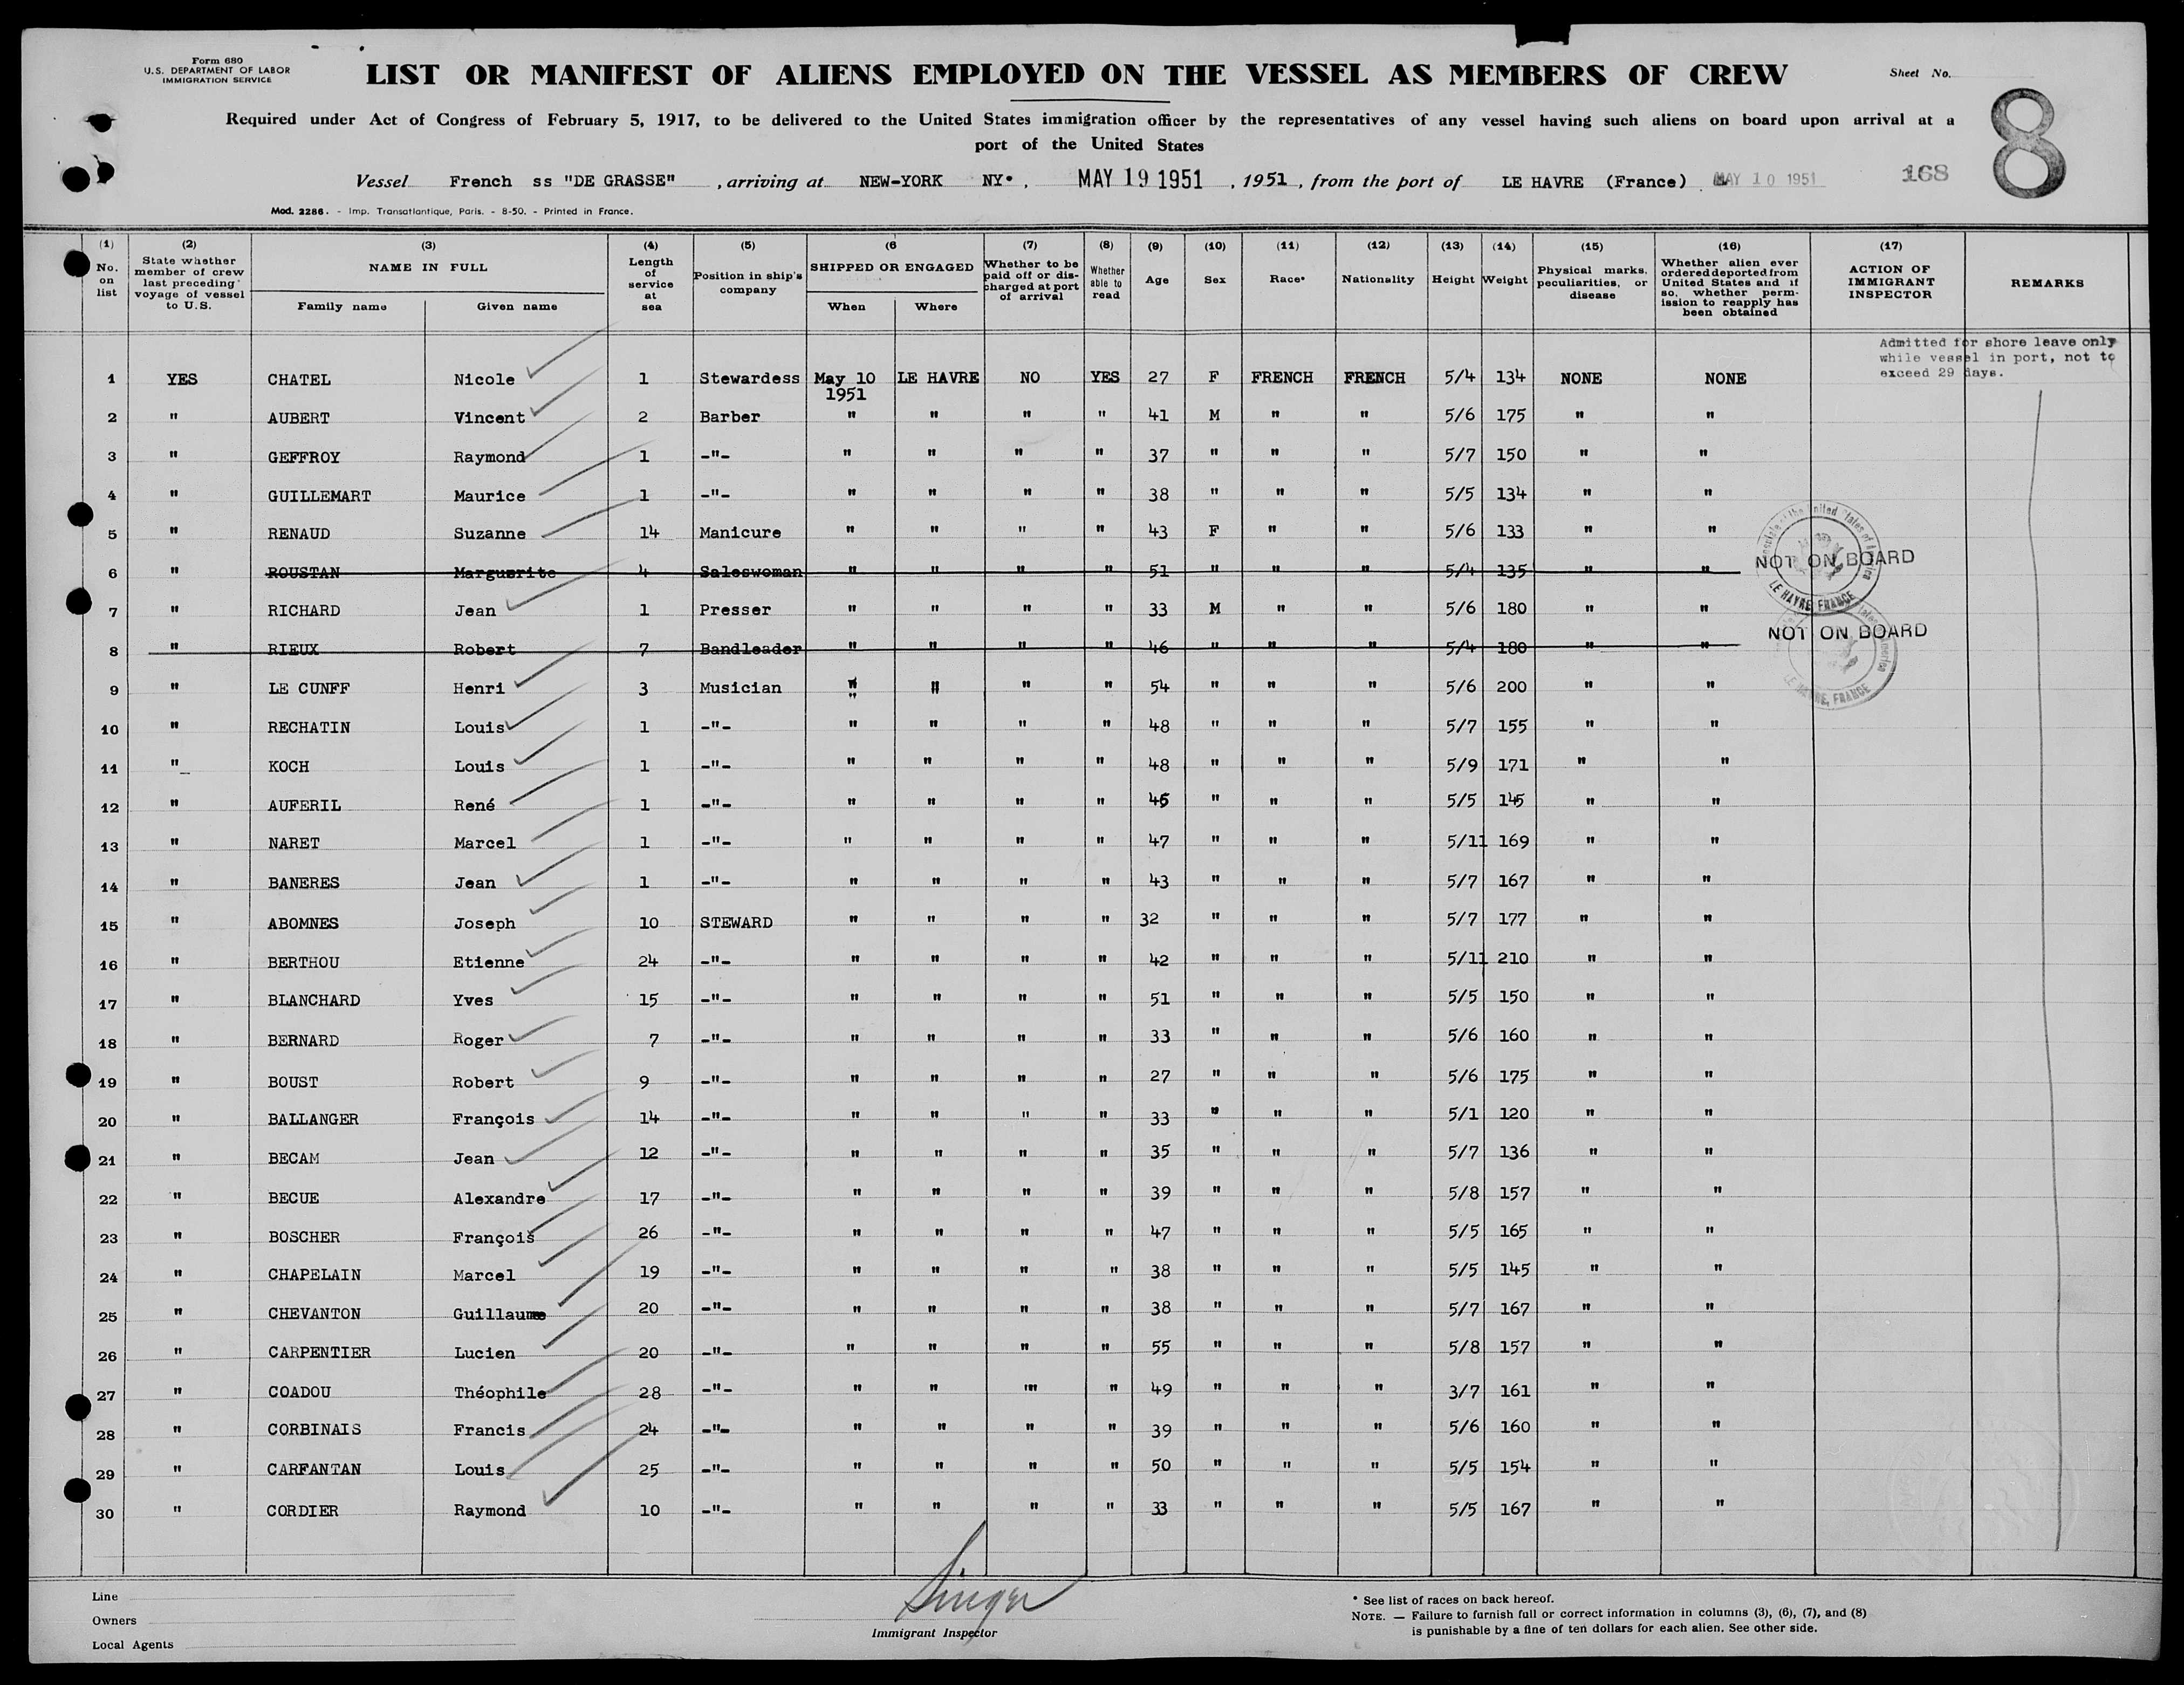 Form 680
U.S. DEPARTMENT OF LABOR
IMMIGRATION SERVICE
LIST OR MANIFEST OF ALIENS EMPLOYED ON THE VESSEL AS MEMBERS OF CREW
Sheet No.
8
Required under Act of Congress of February 5, 1917, to be delivered to the United States immigration officer by the representatives of any vessel having such aliens on board upon arrival at a
port of the United States
Vessel French ss "DE GRASSE" , arriving at NEW-YORK NY. , MAY 19 1951 , 1951 , from the port of LE HAVRE (France) MAY 10 1951 168
Mod. 2286. - Imp. Transatlantique, Paris. - 8-50. - Printed in France.
(1) (2) (3) (4) (5) (6 (7) (8) (9) (10) (11) (12) (13) (14) (15) (16) (17)
No. on list
State whether member of crew last preceding voyage of vessel to U.S.
NAME IN FULL
Family name Given name
Length of service at sea
Position in ship's company
SHIPPED OR ENGAGED
When Where
Whether to be paid off or discharged at port of arrival
Whether able to read
Age
Sex
Race*
Nationality
Height
Weight
Physical marks, peculiarities, or disease
Whether alien ever ordered deported from United States and if so, whether permission to reapply has been obtained
ACTION OF IMMIGRANT INSPECTOR
REMARKS
Admitted for shore leave only
while vessel in port, not to
exceed 29 days.
1 YES CHATEL Nicole 1 Stewardess May 10 1951 LE HAVRE NO YES 27 F FRENCH FRENCH 5/4 134 NONE NONE
2 " AUBERT Vincent 2 Barber " " " " 41 M " " 5/6 175 " "
3 " GEFFROY Raymond 1 -"- " " " " 37 " " " 5/7 150 " "
4 " GUILLEMART Maurice 1 -"- " " " " 38 " " " 5/5 134 " "
5 " RENAUD Suzanne 14 Manicure " " " " 43 F " " 5/6 133 " "
6 " ROUSTAN Marguerite 4 Saleswoman " " " " 51 " " " 5/4 135 " " NOT ON BOARD
7 " RICHARD Jean 1 Presser " " " " 33 M " " 5/6 180 " "
LE HAVRE, FRANCE
8 " RIEUX Robert 7 Bandleader " " " " 46 " " " 5/4 180 " " NOT ON BOARD
9 " LE CUNFF Henri 3 Musician " " " " 54 " " " 5/6 200 " "
10 " RECHATIN Louis 1 -"- " " " " 48 " " " 5/7 155 " "
11 " KOCH Louis 1 -"- " " " " 48 " " " 5/9 171 " "
12 " AUFERIL René 1 -"- " " " " 46 " " " 5/5 145 " "
13 " NARET Marcel 1 -"- " " " " 47 " " " 5/11 169 " "
14 " BANERES Jean 1 -"- " " " " 43 " " " 5/7 167 " "
15 " ABOMNES Joseph 10 STEWARD " " " " 32 " " " 5/7 177 " "
16 " BERTHOU Etienne 24 -"- " " " " 42 " " " 5/11 210 " "
17 " BLANCHARD Yves 15 -"- " " " " 51 " " " 5/5 150 " "
18 " BERNARD Roger 7 -"- " " " " 33 " " " 5/6 160 " "
19 " BOUST Robert 9 -"- " " " " 27 " " " 5/6 175 " "
20 " BALLANGER François 14 -"- " " " " 33 " " " 5/1 120 " "
21 " BECAM Jean 12 -"- " " " " 35 " " " 5/7 136 " "
22 " BECUE Alexandre 17 -"- " " " " 39 " " " 5/8 157 " "
23 " BOSCHER François 26 -"- " " " " 47 " " " 5/5 165 " "
24 " CHAPELAIN Marcel 19 -"- " " " " 38 " " " 5/5 145 " "
25 " CHEVANTON Guillaume 20 -"- " " " " 38 " " " 5/7 167 " "
26 " CARPENTIER Lucien 20 -"- " " " " 55 " " " 5/8 157 " "
27 " COADOU Théophile 28 -"- " " " " 49 " " " 3/7 161 " "
28 " CORBINAIS Francis 24 -"- " " " " 39 " " " 5/6 160 " "
29 " CARFANTAN Louis 25 -"- " " " " 50 " " " 5/5 154 " "
30 " CORDIER Raymond 10 -"- " " " " 33 " " " 5/5 167 " "
Line
Owners
Local Agents
Singer
Immigrant Inspector
* See list of races on back hereof.
NOTE. — Failure to furnish full or correct information in columns (3), (6), (7), and (8)
is punishable by a fine of ten dollars for each alien. See other side.